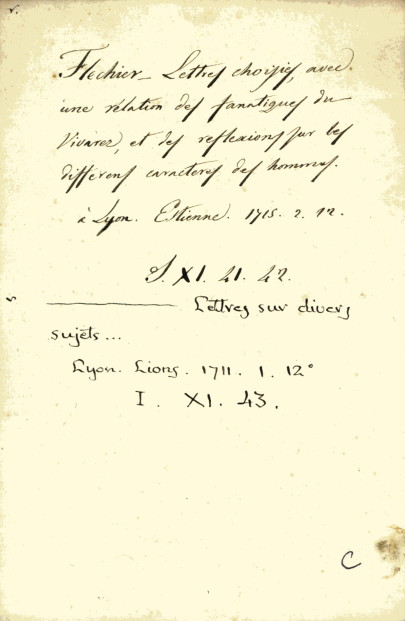 Flechier Lettres choisies, avec
une rélation des fanatiques du
Vivarez, et des reflexions sur les
différens caracteres des hommes.
à Lyon. Estienne. 1715. 2. 12.
I. XI. 41. 42.
——— Lettres sur divers
sujets...
Lyon. Lions. 1711. 1. 12°
I. XI. 43.
C